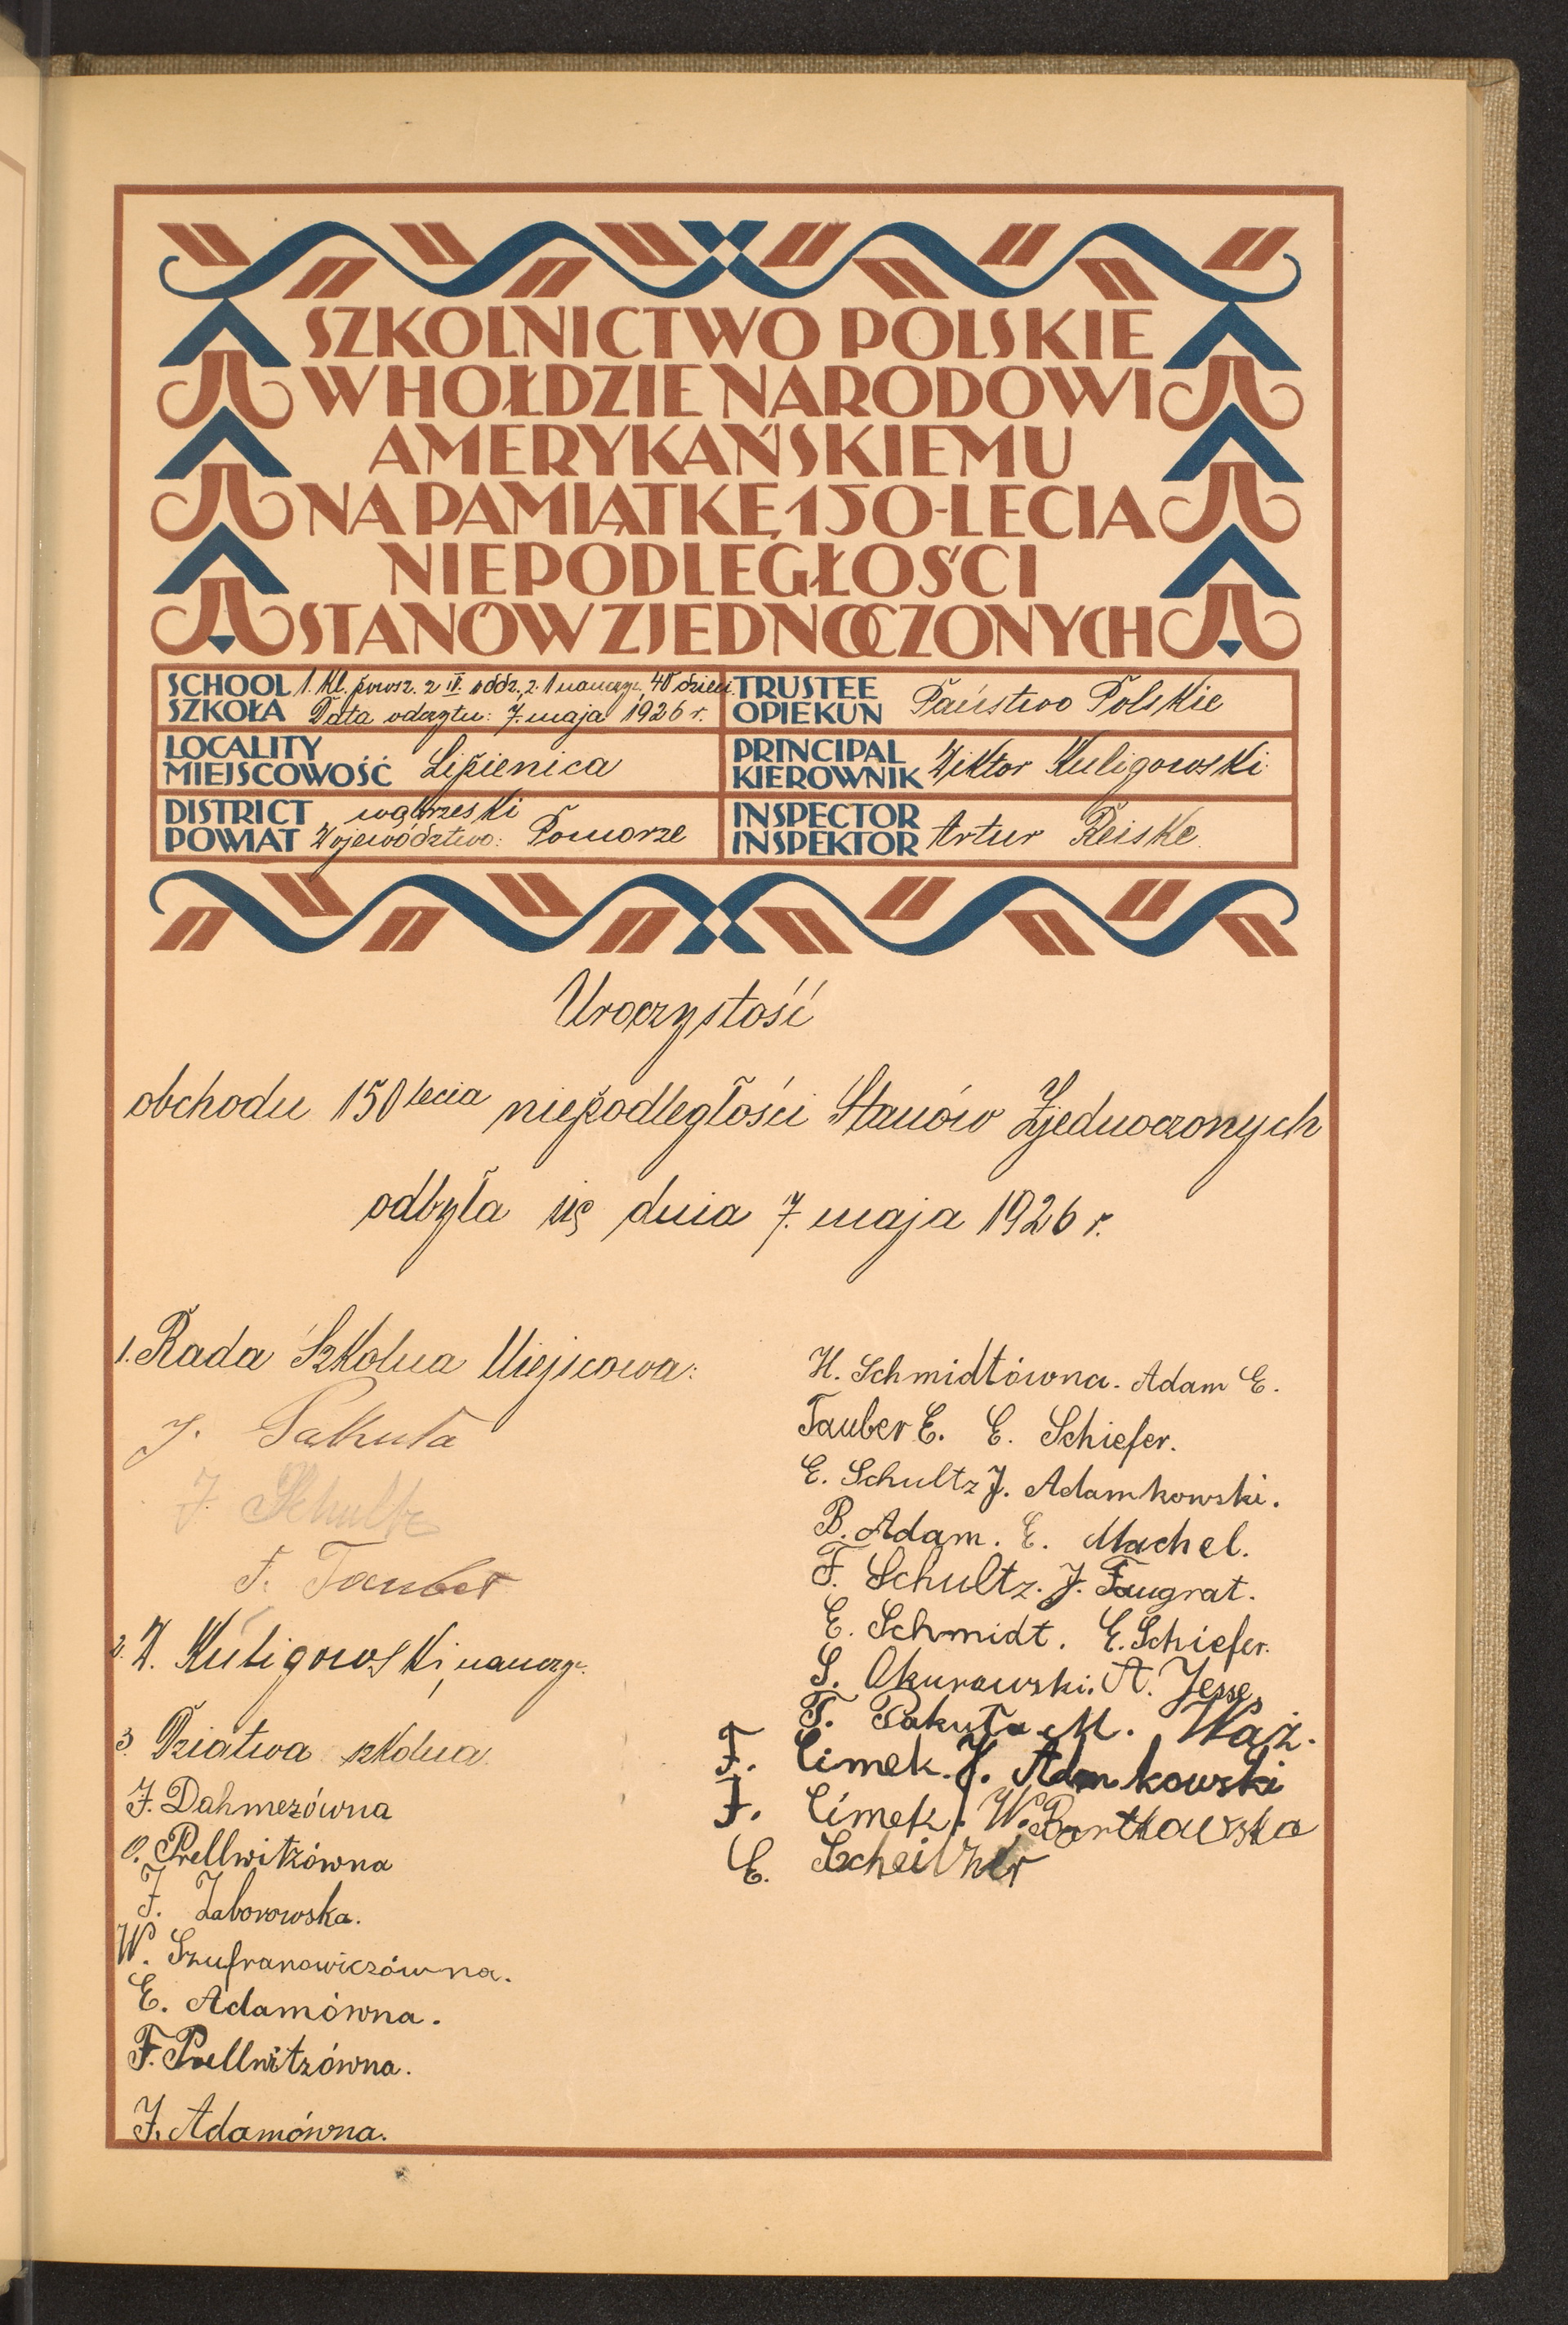 SZKOLNICTWO POLSKIE
W HOŁDZIE NARODOWI
AMERYKAŃSKIEMU
NA PAMIĄTKĘ 150-LECIA
NIEPODLEGŁOŚCI
STANÓW ZJEDNOCZONYCH
SCHOOL 1. kl. powsz. z IV. oddz. z 1 naucz. 40 dzieci.
SZKOŁA Data odczytu: 7. maja 1926 r.
TRUSTEE
OPIEKUN Państwo Polskie
LOCALITY
MIEJSCOWOŚĆ Lipienica
PRINCIPAL
KIEROWNIK Wiktor Kuligowski
DISTRICT wąbrzeski
POWIAT Województwo: Pomorze
INSPECTOR
INSPEKTOR Artur Reiske
Uroczystość
obchodu 150 lecia niepodległości Stanów Zjednoczonych
odbyła się dnia 7. maja 1926 r.
1. Rada Szkolna Miejscowa:
J. Pakuła
J. Schultz
F. Tauber
2. W. Kuligowski, naucz.
3. Dziatwa szkolna
J. Dahmezówna
O. Prellwitzówna
J. Zaborowska.
W. Szufranowiczówna.
E. Adamówna.
F. Prellwitzówna.
J. Adamówna.
H. Schmidtówna. Adam E.
Tauber E. E. Schiefer.
E. Schultz J. Adamkowski.
B. Adam. E. Machel.
F. Schultz. J. Faugrat.
E. Schmidt. E. Schiefer.
S. Okurowski. A. Jesse.
T. Pakuła M. Waż.
F. Cimek. J. Adamkowski
J. Cimek. W. Bartkowska
E.